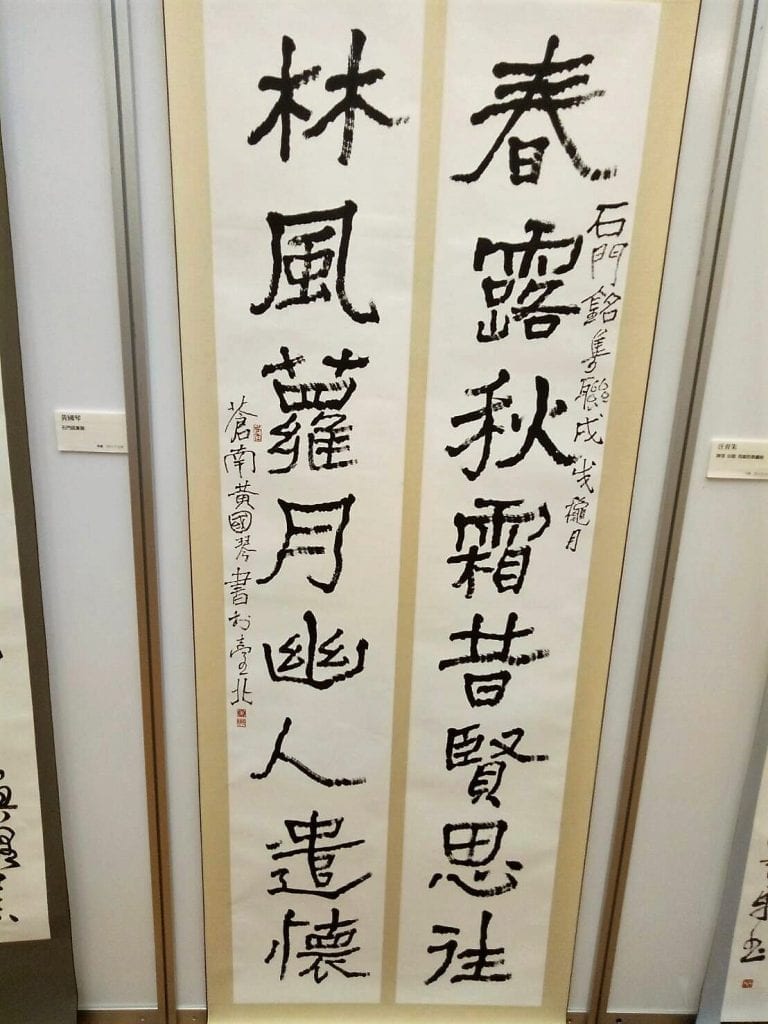 春露秋霜昔賢思往
石門銘集聯戊戌穐月
林風蘿月幽人遣懷
蒼南黃國琴書於臺北
黃國琴
石門銘集聯